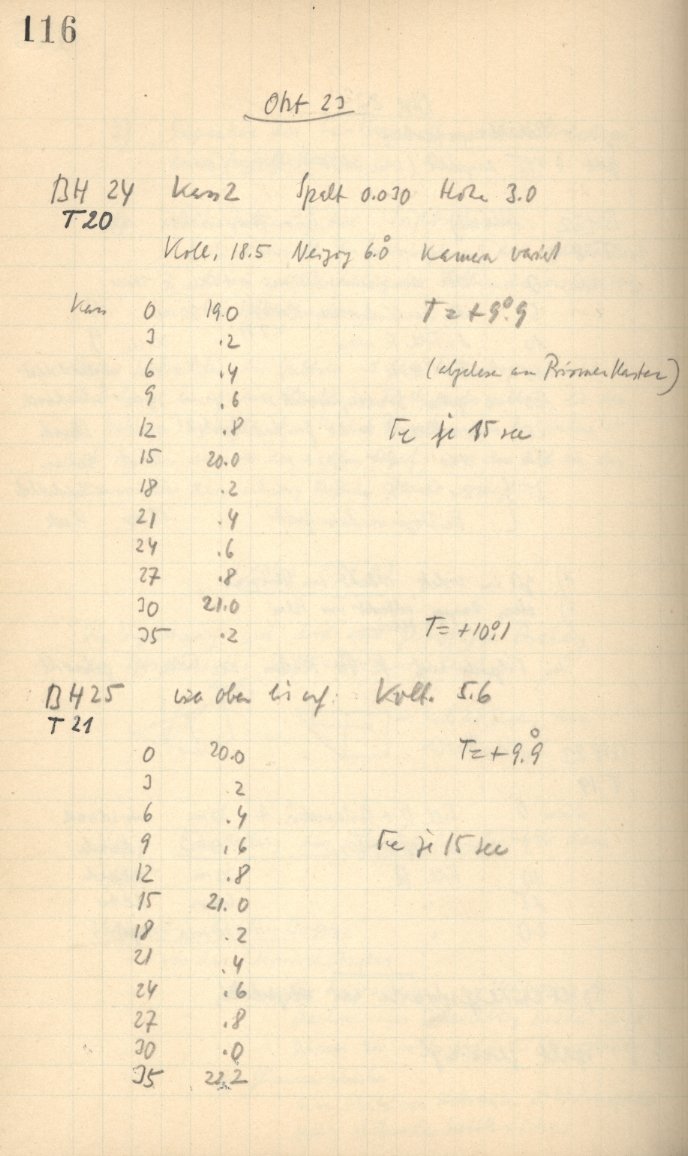 116
Okt 23
BH 24 Kass 2 Spalt 0.030 Höhe 3.0
T 20
Koll. 18.5 Neigung 6.0° Kamera variiert
Kass 0 19.0 T = +9°.9
3 .2
6 .4 (abgelesen am Prismenkasten)
9 .6
12 .8 Fe je 15 sec
15 20.0
18 .2
21 .4
24 .6
27 .8
30 21.0
35 .2 T = +10°.1
BH 25 wie oben bis auf Koll. 5.6
T 21
0 20.0 T = +9.9°
3 .2
6 .4
9 .6 Fe je 15 sec
12 .8
15 21.0
18 .2
21 .4
24 .6
27 .8
30 .0
35 22.2